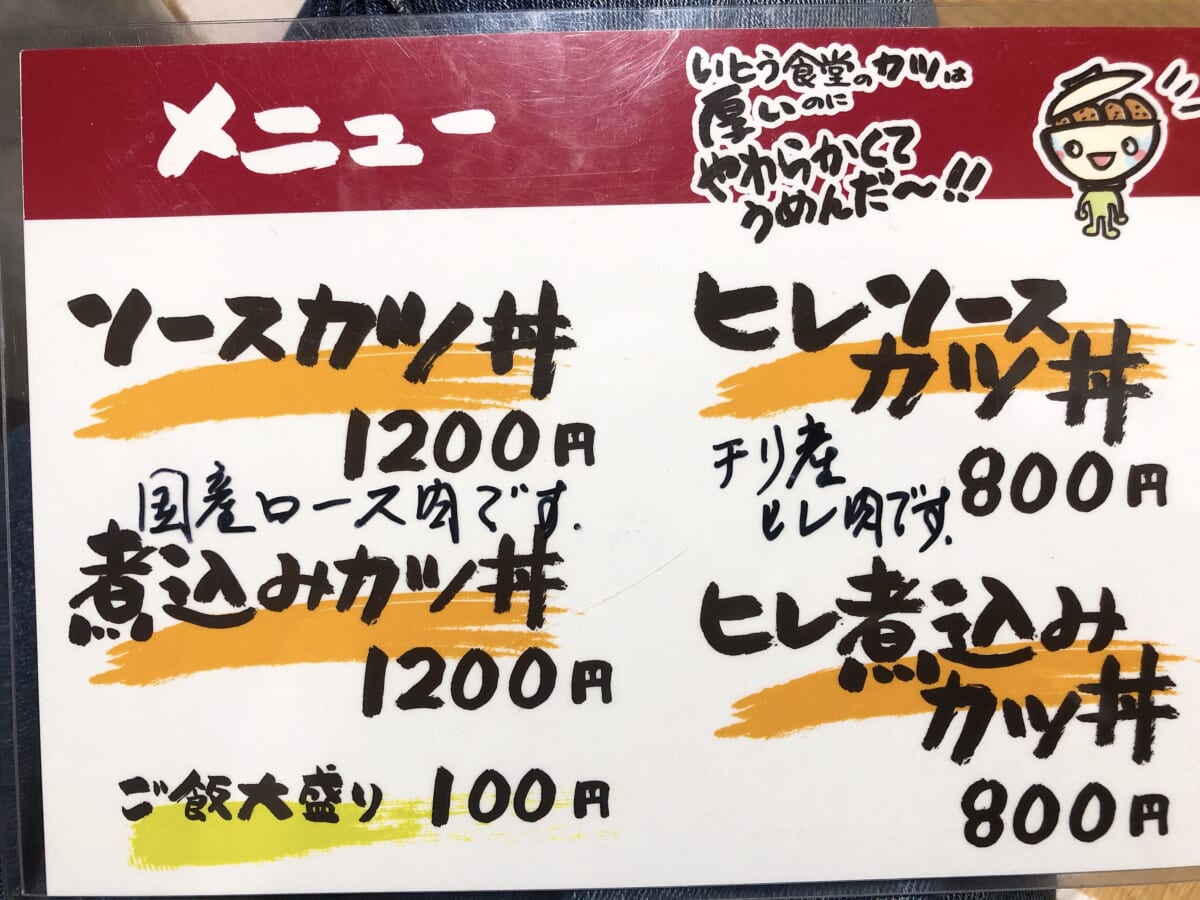 メニュー
いとう食堂のカツは
厚いのに
やわらかくて
うめんだ〜!!
ソースカツ丼
1200円
国産ロース肉です.
煮込みカツ丼
1200円
ご飯大盛り 100円
ヒレソース
カツ丼
800円
チリ産
ヒレ肉です.
ヒレ煮込み
カツ丼
800円